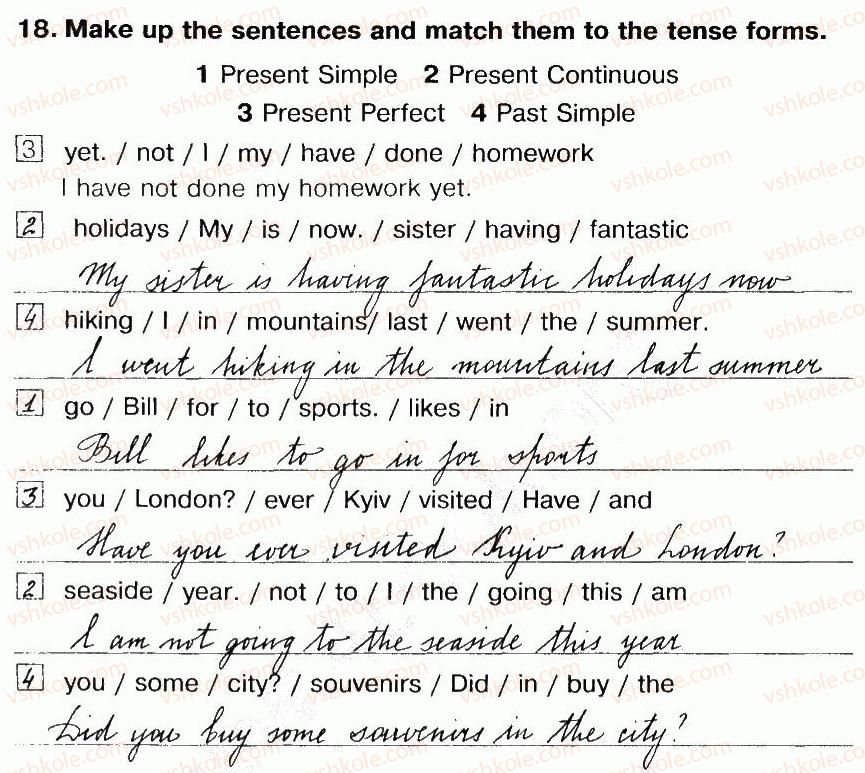 18. Make up the sentences and match them to the tense forms.
1 Present Simple 2 Present Continuous
3 Present Perfect 4 Past Simple
3 yet. / not / I / my / have / done / homework
I have not done my homework yet.
2 holidays / My / is / now. / sister / having / fantastic
My sister is having fantastic holidays now
4 hiking / I / in / mountains/ last / went / the / summer.
I went hiking in the mountains last summer
1 go / Bill / for / to / sports. / likes / in
Bill likes to go in for sports
3 you / London? / ever / Kyiv / visited / Have / and
Have you ever visited Kyiv and London?
2 seaside / year. / not / to / I / the / going / this / am
I am not going to the seaside this year
4 you / some / city? / souvenirs / Did / in / buy / the
Did you buy some souvenirs in the city?
vshkole.com